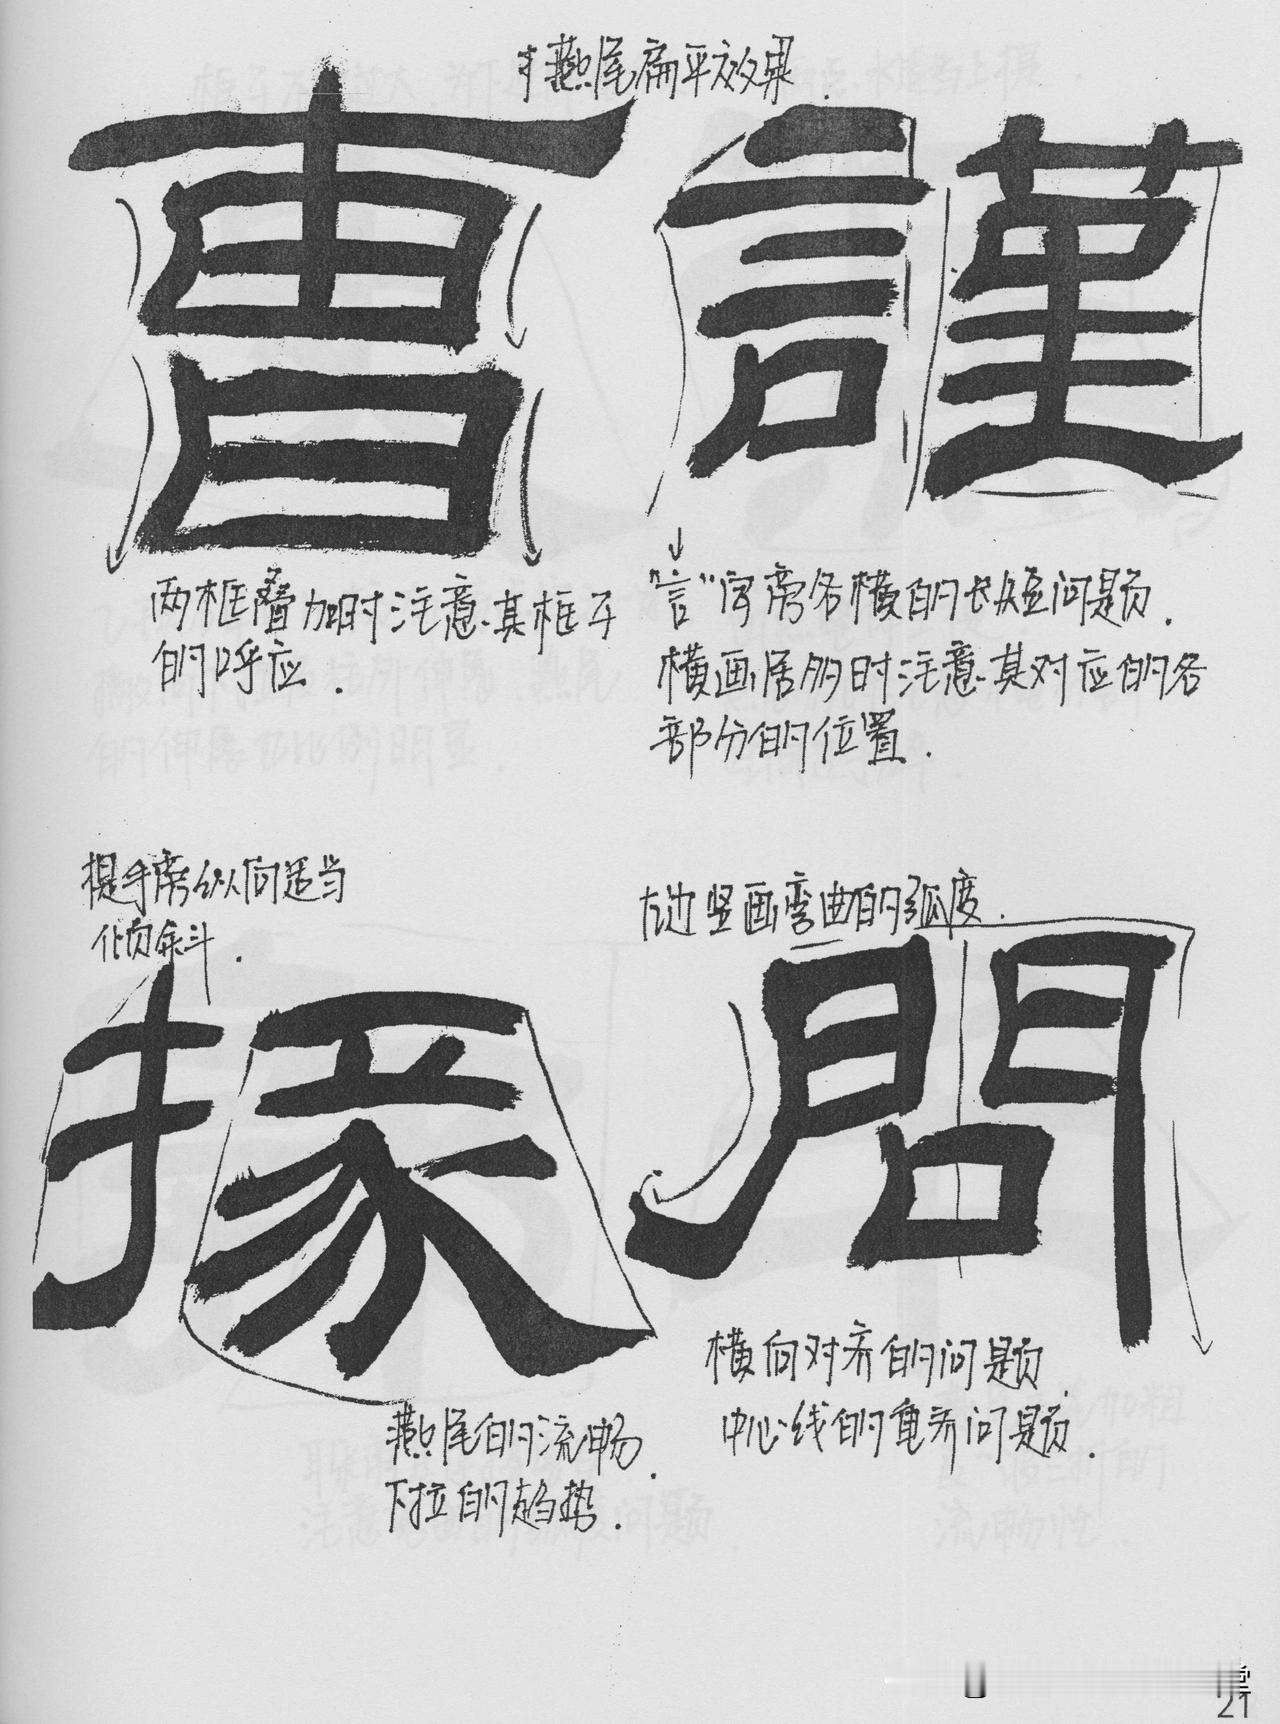 燕尾扁平效果.
曺 謹
两框叠加时注意其框子
的呼应.
"言"字旁各横的长短问题.
横画居多时注意其对应的各
部分的位置.
提手旁纵向适当
倾斜.
左边竖画弯曲的弧度.
掾 問
燕尾的流畅.
下拉的趋势.
横向对齐的问题.
中心线的重齐问题.
21